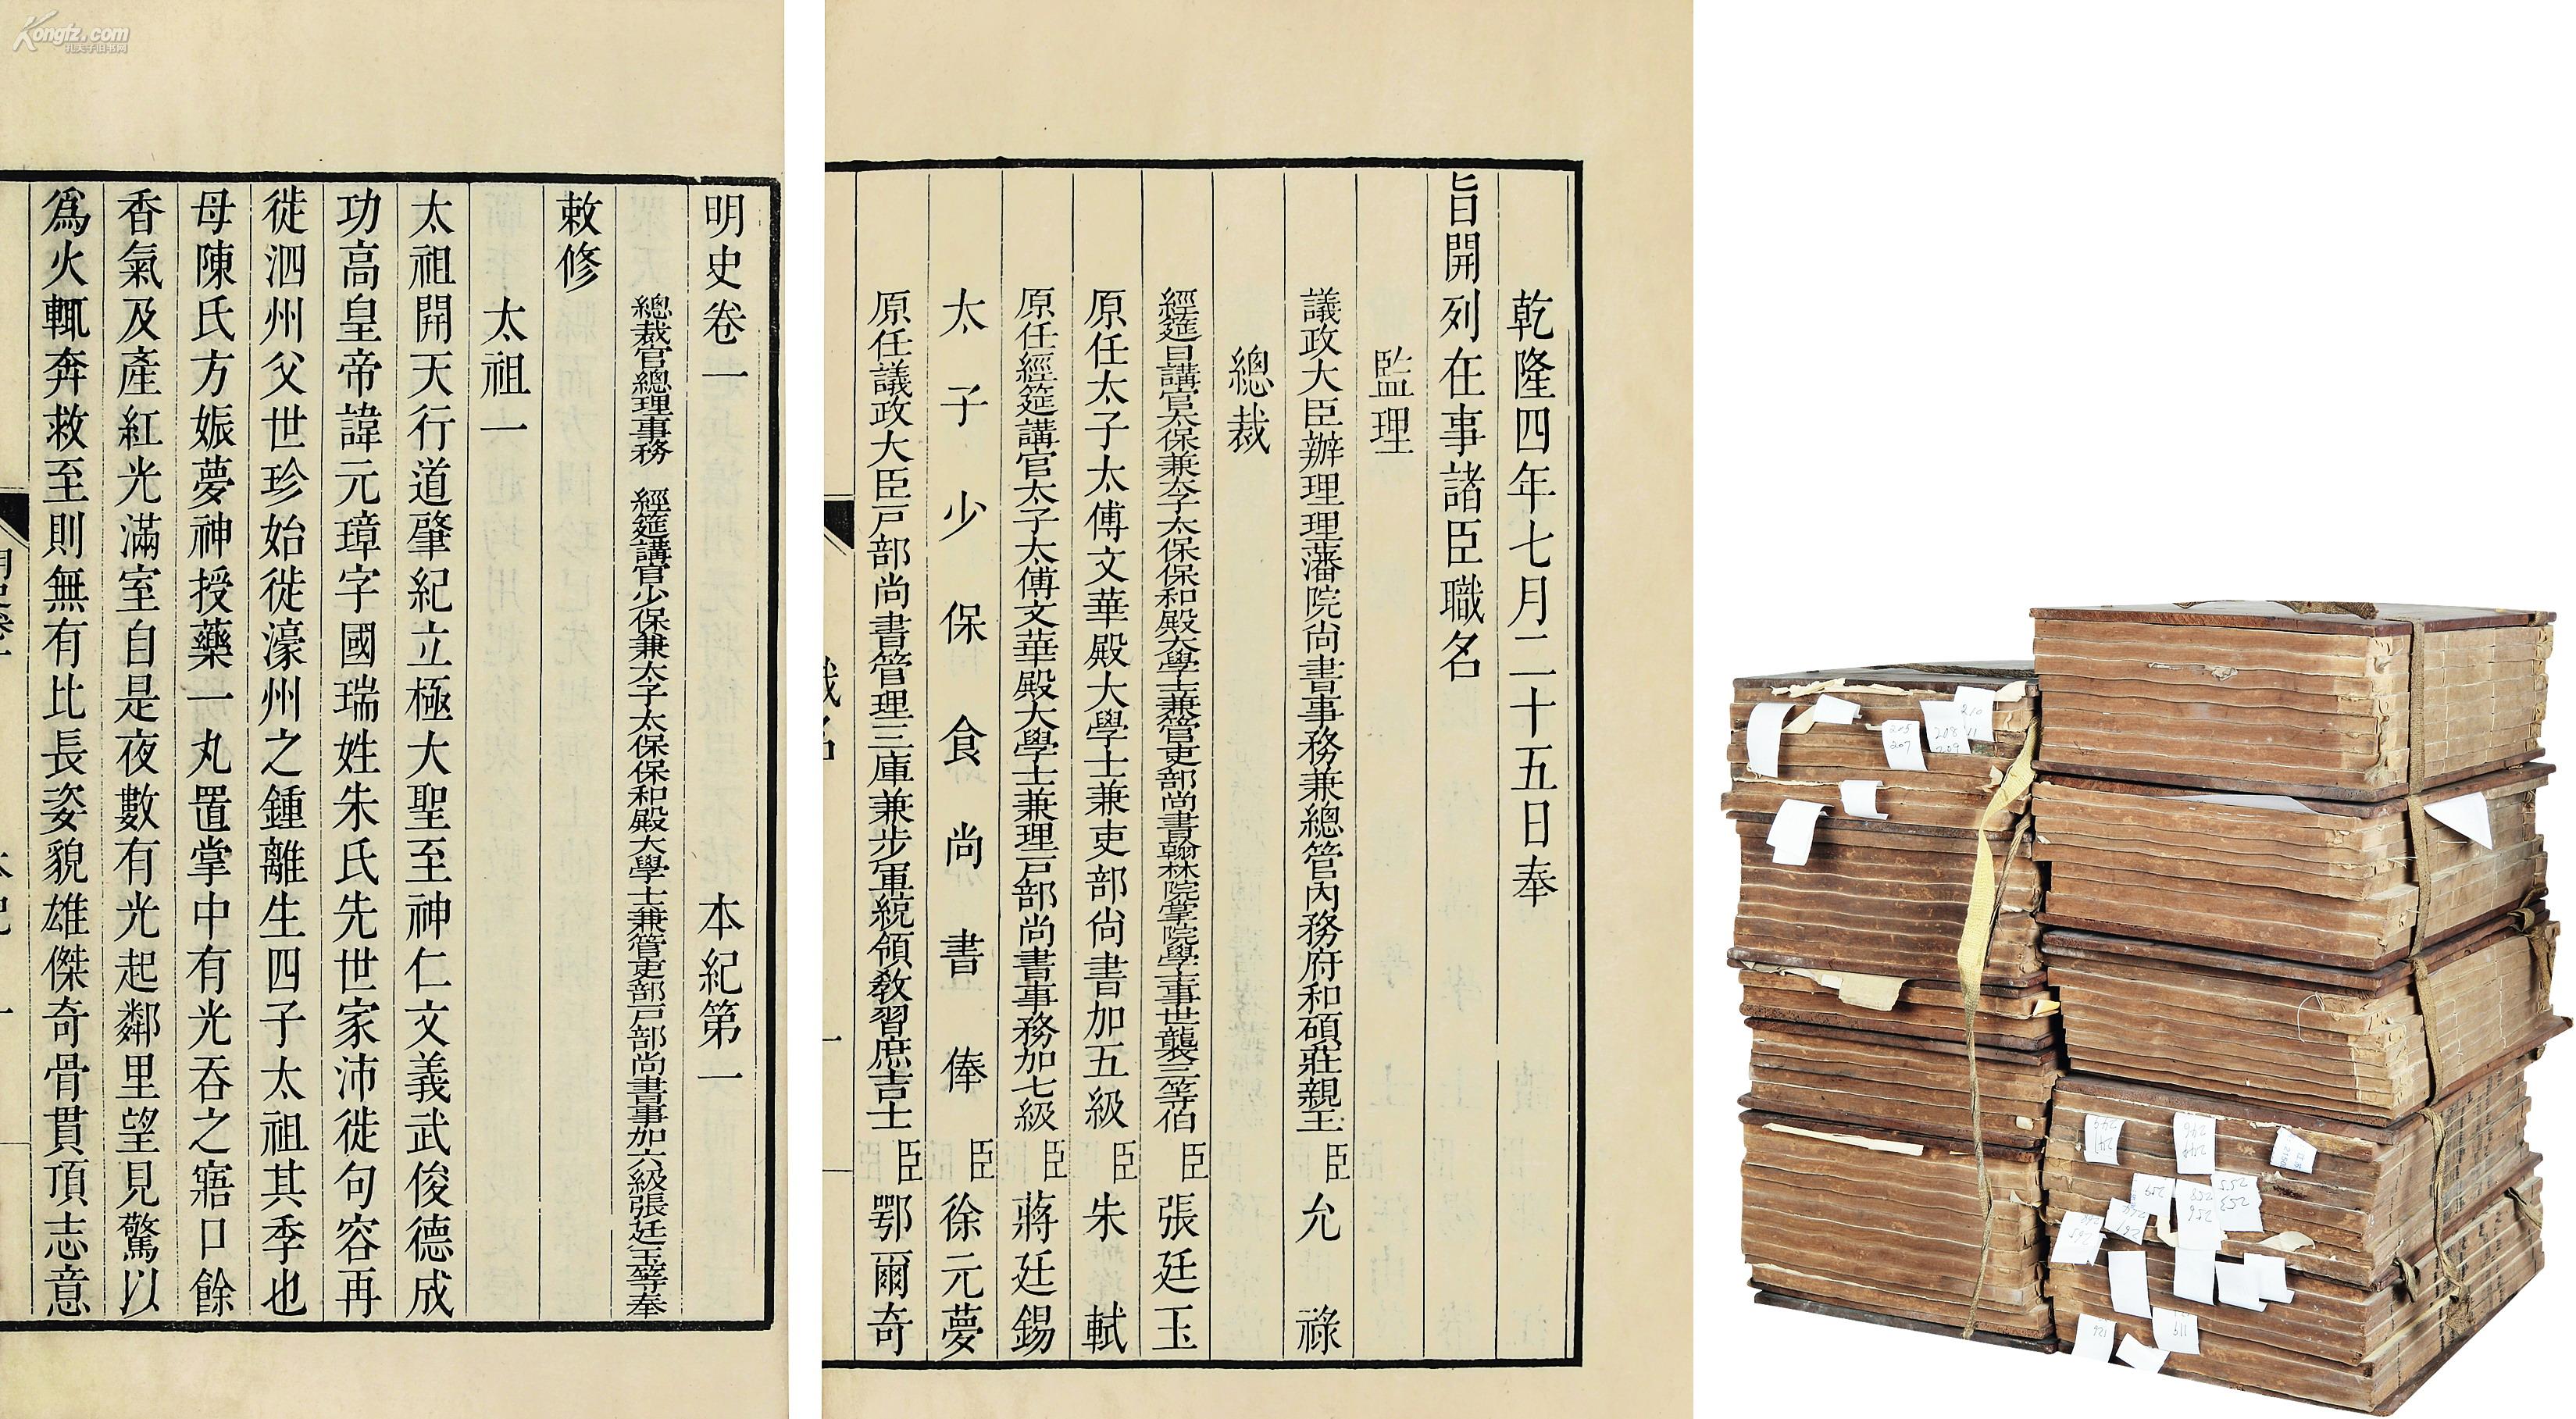 Kongfz.com
孔夫子旧书网
明史卷一 本紀第一
總裁官總理事務 經筵講官少保兼太子太保保和殿大學士兼管吏部戶部尚書事加六級張廷玉等奉
敕修
太祖一
太祖開天行道肇紀立極大聖至神仁文義武俊德成
功高皇帝諱元璋字國瑞姓朱氏先世家沛徙句容再
徙泗州父世珍始徙濠州之鍾離生四子太祖其季也
母陳氏方娠夢神授藥一丸置掌中有光吞之寤口餘
香氣及產紅光滿室自是夜數有光起鄰里望見驚以
為火輒奔救至則無有比長姿貌雄傑奇骨貫頂志意
乾隆四年七月二十五日奉
旨開列在事諸臣職名
監理
議政大臣辦理理藩院尚書事務兼總管內務府和碩莊親王臣允祿
總裁
經筵日講官太保兼太子太保保和殿大學士兼管吏部尚書翰林院掌院學士事世襲三等伯臣張廷玉
原任太子太傅文華殿大學士兼吏部尚書加五級臣朱軾
原任經筵講官太子太傅文華殿大學士兼理戶部尚書事務加七級臣蔣廷錫
太子少保食尚書俸臣徐元夢
原任議政大臣戶部尚書管理三庫兼步軍統領教習庶吉士臣鄂爾奇
職名
一
210
215
207
208 11
209